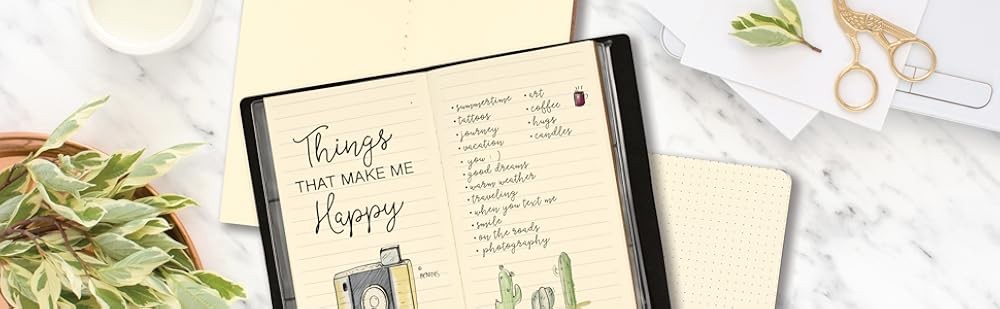 Things
THAT MAKE ME
Happy
• summertime
• tattoos
• journey
• vacation
• you : )
• good dreams
• warm weather
• traveling
• when you text me
• smile
• on the roads
• photography
• art
• coffee
• hugs
• candles